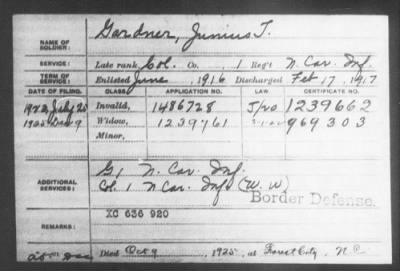 NAME OF SOLDIER: Gardner, Junius T.
SERVICE: Late rank, Col. Co. 1 Reg't N. Car. Inf.
TERM OF SERVICE: Enlisted June, 1916 Discharged Feb 17, 1917
DATE OF FILING. CLASS. APPLICATION NO. LAW. CERTIFICATE NO.
Invalid, 1486728 1239662
1925 Widow, 1239761 969303
Minor,
ADDITIONAL SERVICES: G 1 N. Car. Inf.
Col. 1 N Car. Inf (W. W)
Border Defense.
REMARKS: XC 636 920
Died Oct 9, 1925, at Forest City, N.C.